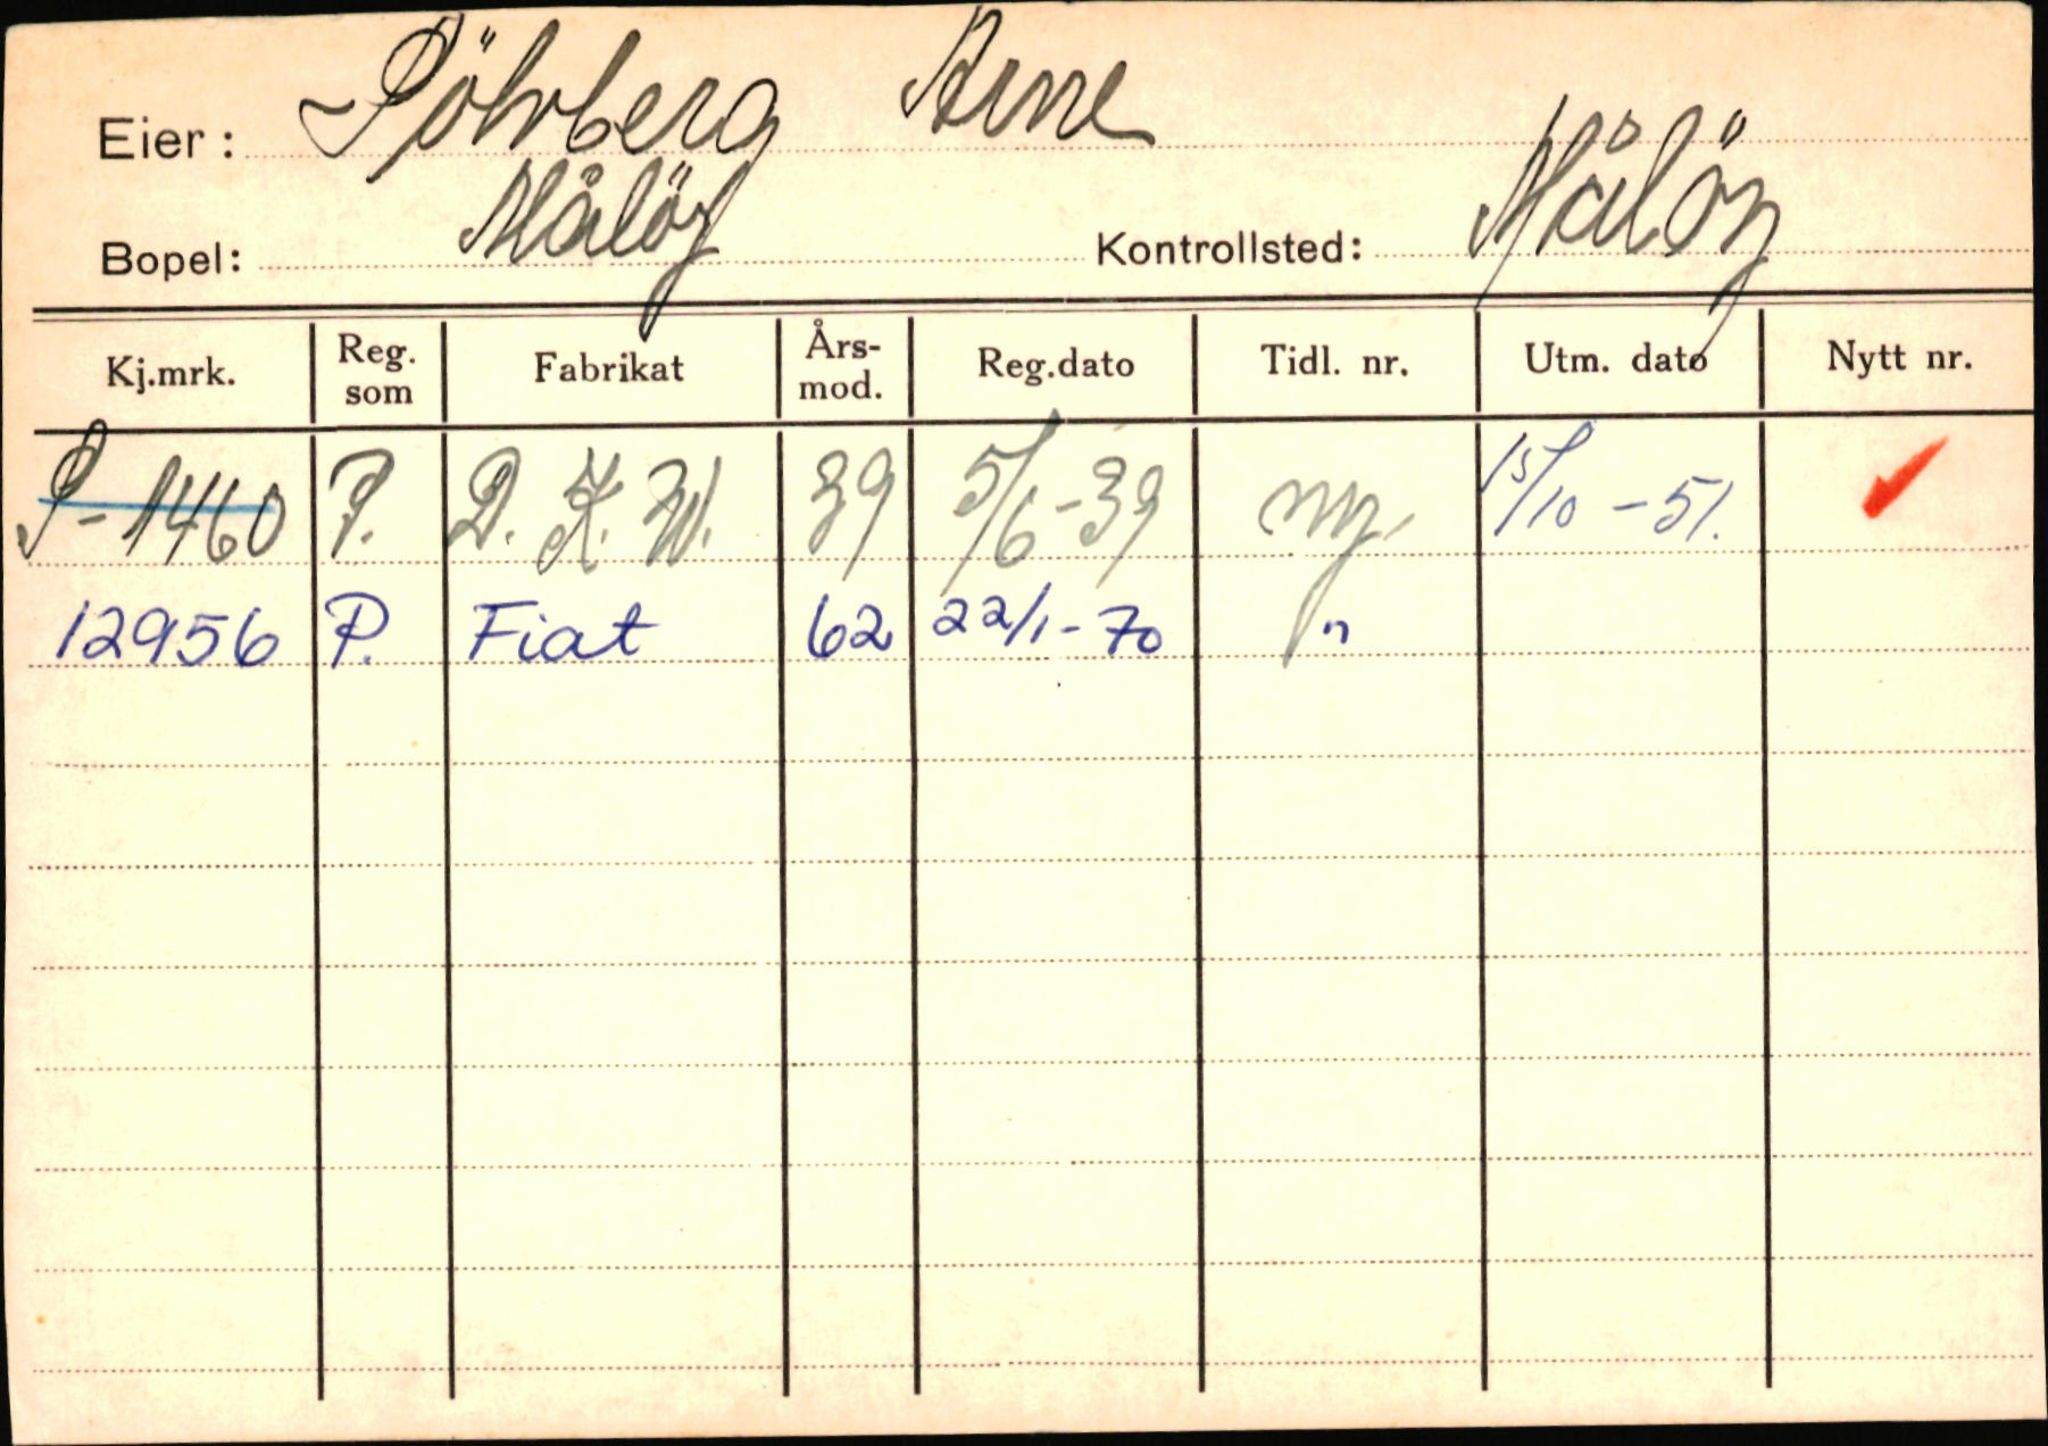 Eier: Sölvberg Arne
Bopel: Målöy Kontrollsted: Målöy
Kj.mrk. Reg. som Fabrikat Års-mod. Reg.dato Tidl. nr. Utm. dato Nytt nr.
S-1460 P. D.K.W. 39 5/6-39 ny. 15/10-51.
12956 P. Fiat 62 22/1-70 "